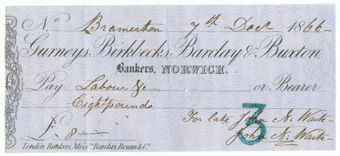 No Bramerton 7th Dec 1866
Gurneys, Birkbecks, Barclay & Buxton
Bankers, NORWICH.
Pay Labour &c or Bearer
Eight pounds
£ 8 For late John N. Waite
John N. Waite
3
London Bankers, Messrs Barclay, Bevan & Co.